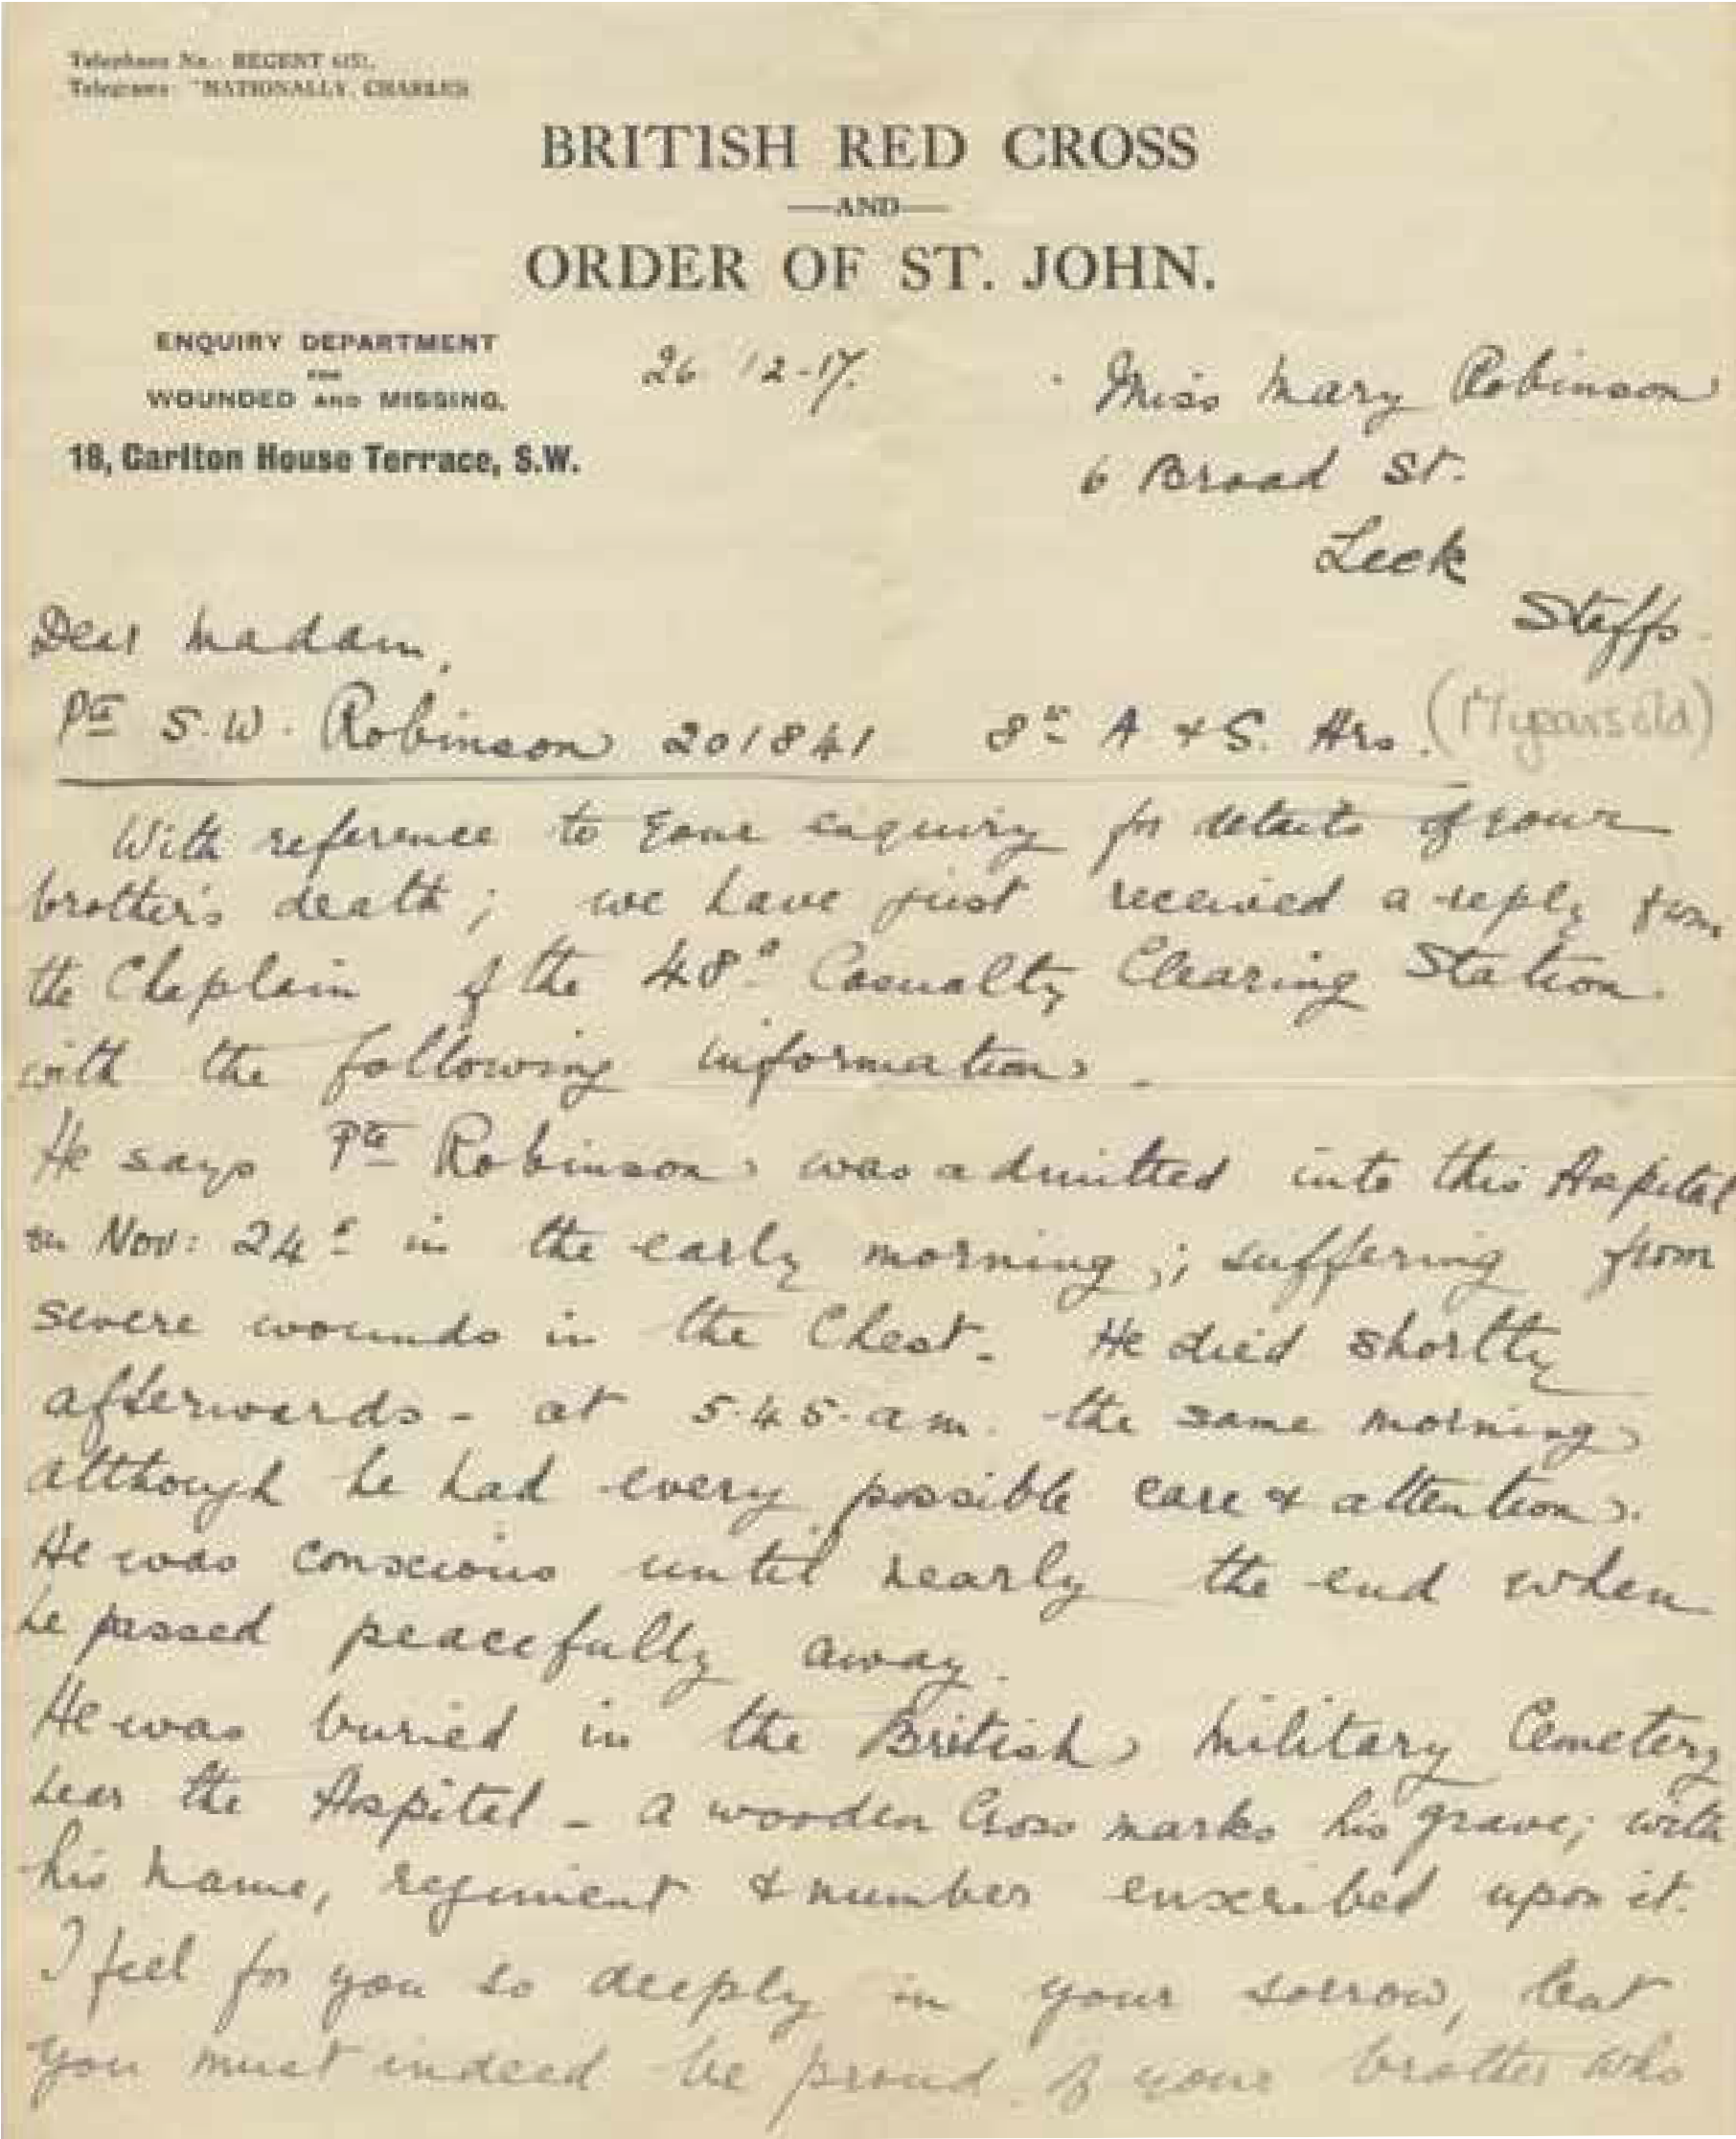 Telephone No.: REGENT
Telegrams: "NATIONALLY, CHARLES
BRITISH RED CROSS
—AND—
ORDER OF ST. JOHN.
ENQUIRY DEPARTMENT
FOR
WOUNDED AND MISSING.
18, Carlton House Terrace, S.W.
26 12-17.
Miss Mary Robinson
6 Broad St.
Leek
Staffs.
Dear Madam,
Pte S.W. Robinson 201841 8th A & S. Hrs. (17 years old)
With reference to your enquiry for details of your
brother's death; we have just received a reply from
the Chaplain of the 48th Casualty Clearing Station
with the following information.
He says Pte Robinson was admitted into this Hospital
on Nov: 24th in the early morning; suffering from
severe wounds in the Chest. He died shortly
afterwards - at 5.45.am. the same morning
although he had every possible care & attention.
He was conscious until nearly the end when
he passed peacefully away.
He was buried in the British Military Cemetery
near the Hospital - a wooden Cross marks his grave; with
his name, regiment & number enscribed upon it.
I feel for you so deeply in your sorrow, but
you must indeed be proud of your brother who